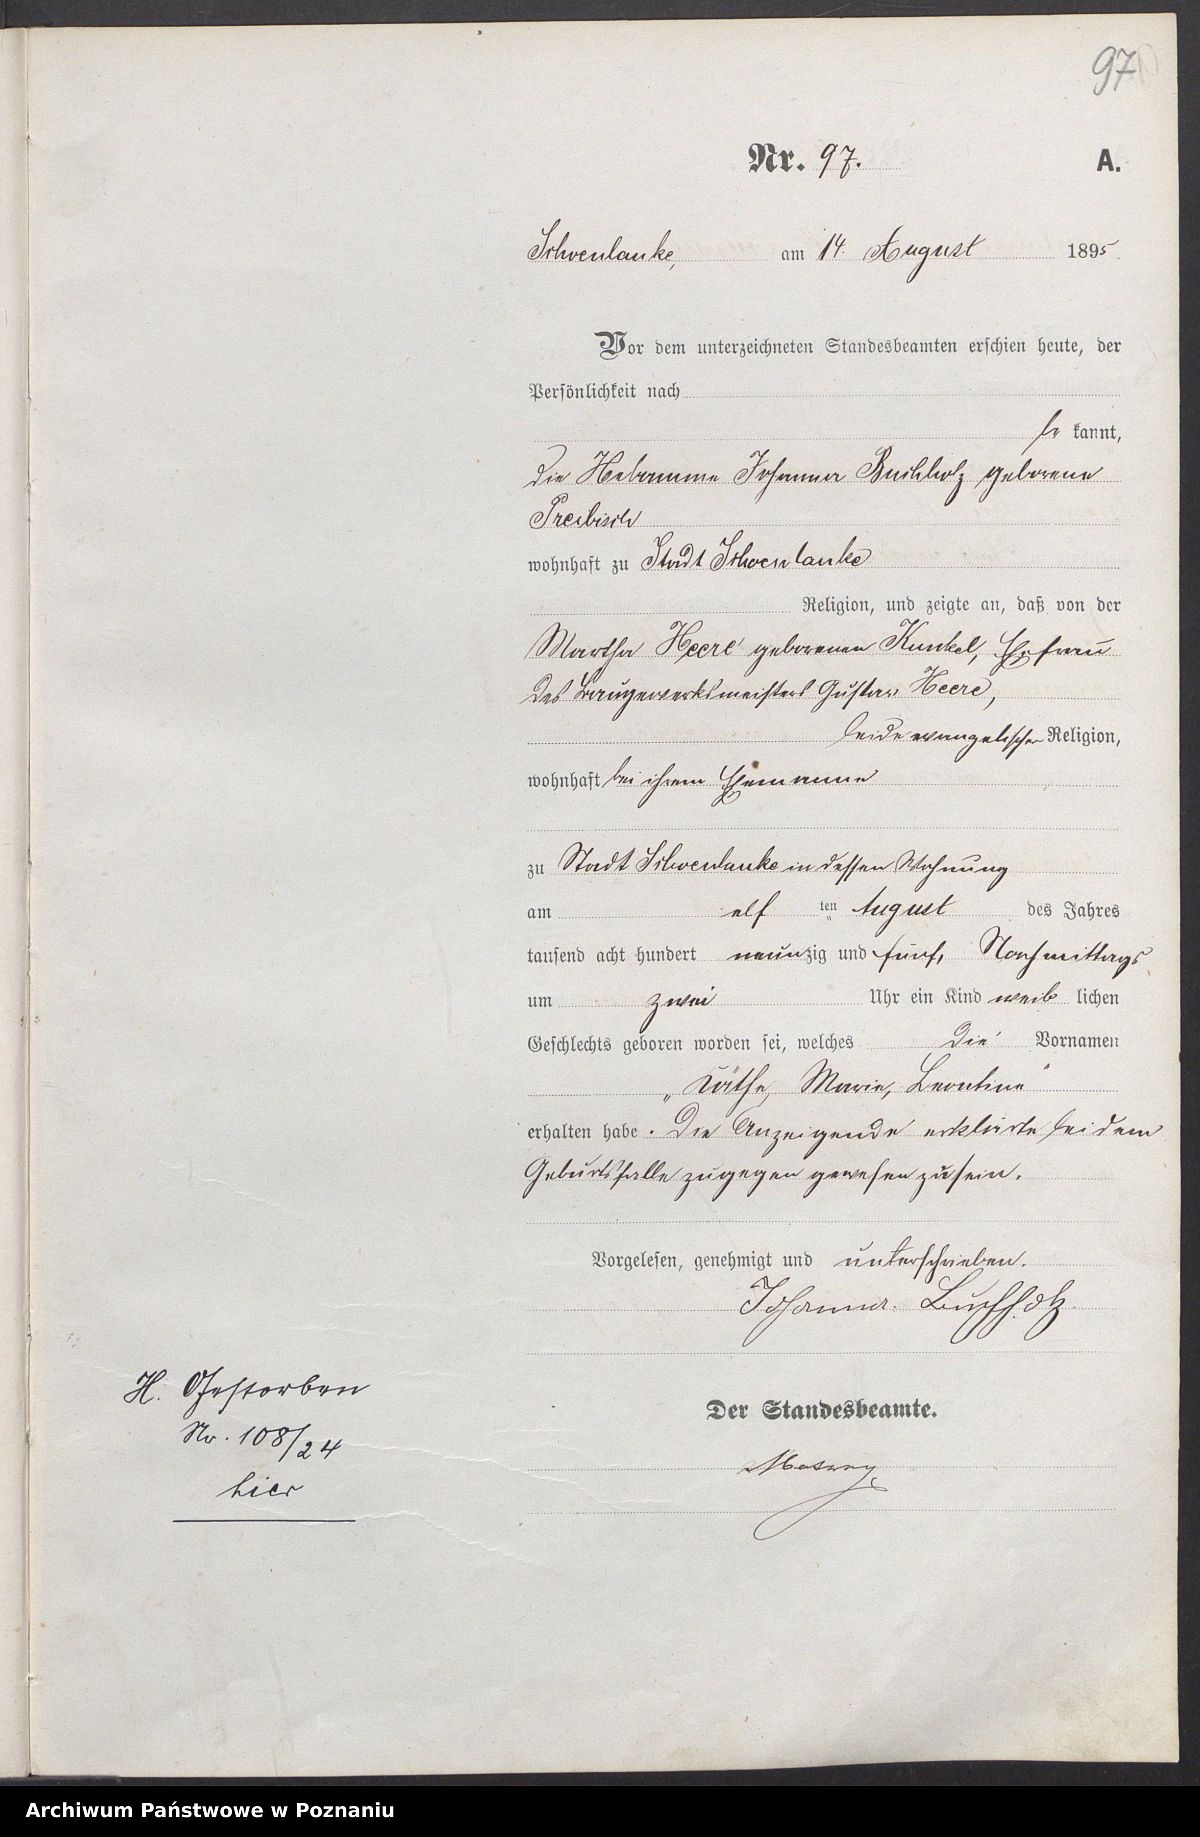 97
Nr. 97. A.
Schoenlanke, am 14. August 1895
Vor dem unterzeichneten Standesbeamten erschien heute, der
Persönlichkeit nach
be kannt,
die Hebamme Johanna Buchholz geborene
Preibisch
wohnhaft zu Stadt Schoenlanke
Religion, und zeigte an, daß von der
Martha Heere geborenen Kunkel, Ehefrau
des Baugewerksmeisters Gustav Heere,
beide evangelischer Religion,
wohnhaft bei ihrem Ehemanne
zu Stadt Schoenlanke in dessen Wohnung
am elf ten August des Jahres
tausend acht hundert neunzig und fünf, Nachmittags
um zwei Uhr ein Kind weib lichen
Geschlechts geboren worden sei, welches die Vornamen
„Käthe, Marie, Leontine“
erhalten habe. Die Anzeigende erklärte bei dem
Geburtsfalle zugegen gewesen zu sein.
Vorgelesen, genehmigt und unterschrieben.
Johanna Buchholz
H. Gestorben
Nr. 108/24
hier
Der Standesbeamte.
Archiwum Państwowe w Poznaniu